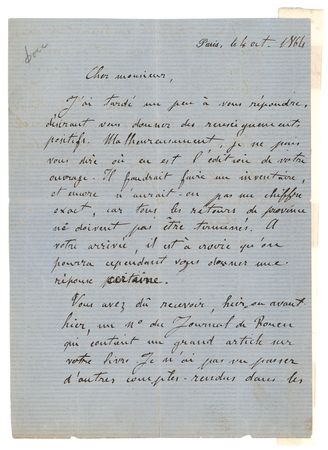 Paris, le 4 oct. 1864
Cher monsieur,
J'ai tardé un peu à vous répondre,
désirant vous donner des renseignements
positifs. Malheureusement, je ne puis
vous dire où en est l'édition de votre
ouvrage. Il faudrait faire un inventaire,
et encore n'aurait-on pas un chiffre
exact, car tous les retours de province
ne doivent pas être terminés. A
votre arrivée, il est à croire qu'on
pourra cependant vous donner une
réponse certaine.
Vous avez dû recevoir, hier ou avant
hier, un no du Journal de Rouen
qui contient un grand article sur
votre livre. Je n'ai pas vu passer
d'autres comptes-rendus dans les